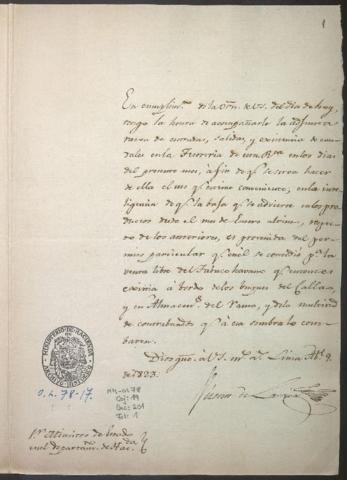 1
En cumplim.to de la orn. de VS. del dia de hoy,
tengo la honra de acompañarle la adjunta
razon de entradas, salidas, y existencia de cau-
dales en la Tesoreria de en los dias
del presente mes, a fin de q.e se sirva hacer
de ella el uso q.e estime conveniente, en la in-
teligencia de q.e la baja q.e se advierte en los pro-
ductos desde el mes de Enero ultimo, respec-
to de los anteriores, es provenida del per-
miso particular q.e en él se concedió p.a la
venta libre del Tabaco havano q.e entonces
existia á bordo de los buques del Callao
y en Almacen.s del Ramo, y de la multitud
de contrabandos q.e á su sombra lo com-
baten.
Dios gue. a VS. m.s a.s Lima M.zo 9.
de 1823.
MINISTERIO DE HACIENDA
O.L. 78-17.
MH-OL78
Caj: 19
Doc: 231
Fol: 1
S.or Ministro de Estado
en el Departam.to de Hac.da